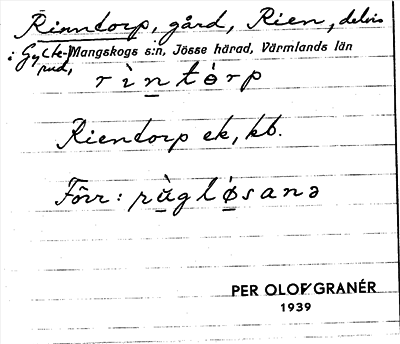 Rinntorp, gård, Rien, delvis
i Gylte-
rud, Mangskogs s:n, Jösse härad, Värmlands län
rìntórp
Rientorp ek, kb.
Förr: rùgløsanə
PER OLOF GRANÉR
1939